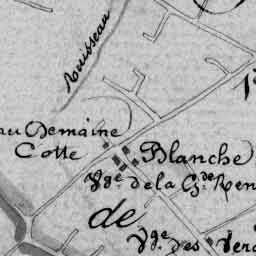 Ruisseau
au Demaine
Cotte Blanche
Vge. de la Gde. Ren
de
Vge. Des Ver